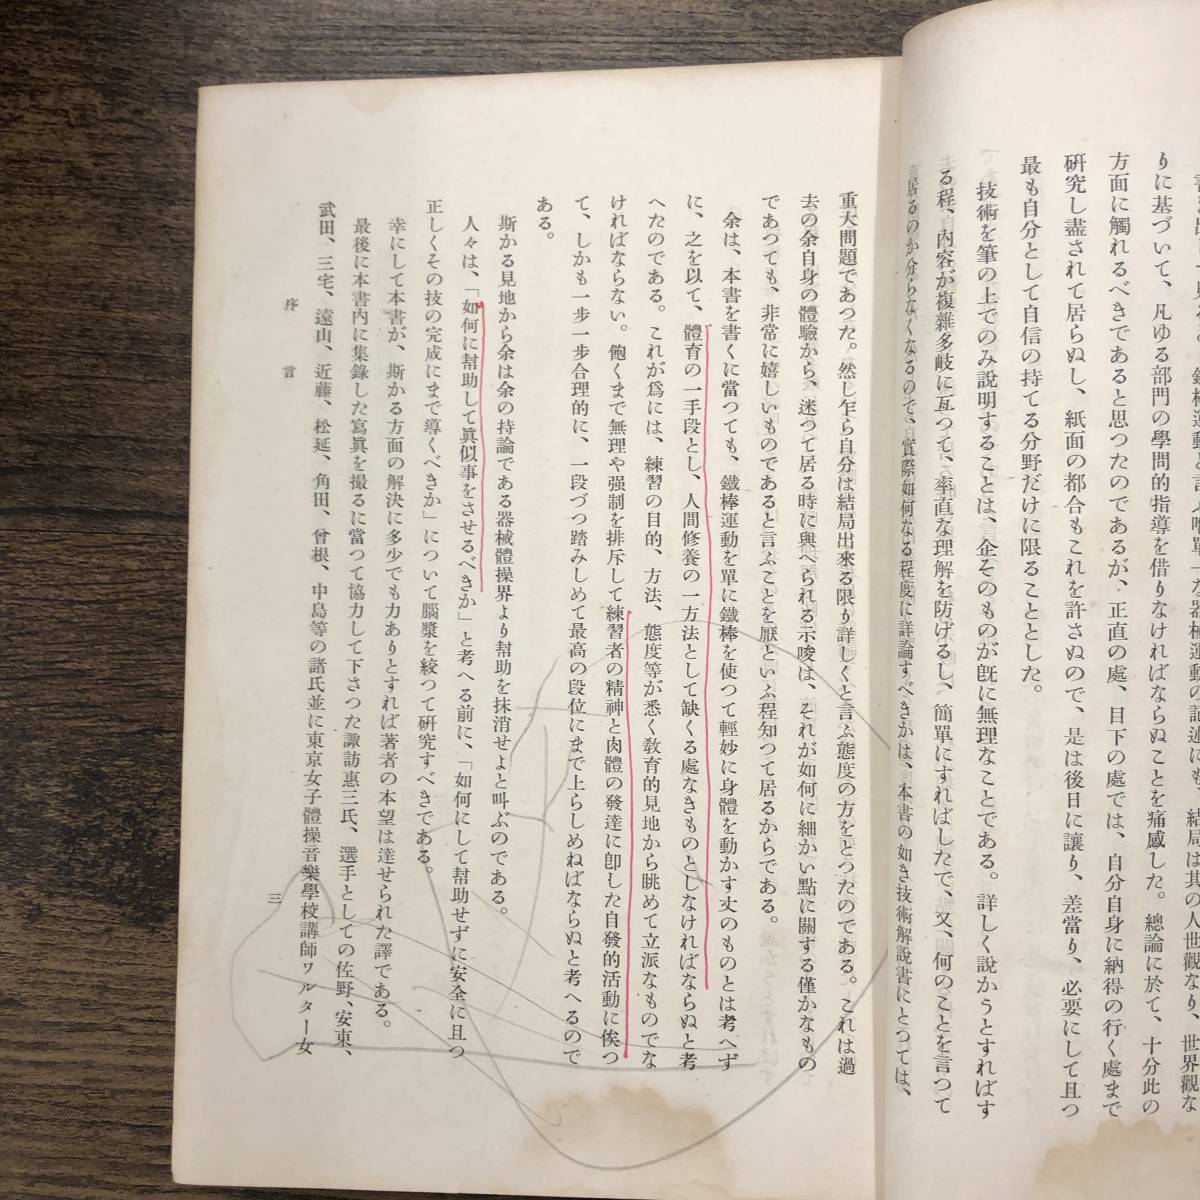 りに基づいて、凡ゆる部門の學問的指導を借りなければならぬことを痛感した。總論に於て、十分此の
方面に觸れるべきであると思つたのであるが、正直の處、目下の處では、自分自身に納得の行く處まで
研究し盡されて居らぬし、紙面の都合もこれを許さぬので、是は後日に讓り、差當り、必要にして且つ
最も自分として自信の持てる分野だけに限ることとした。
技術を筆の上でのみ說明することは、企そのものが旣に無理なことである。詳しく說かうとすればす
る程、內容が複雜多岐に亙つて、率直な理解を防げるし、簡單にすればしたで、又、何のことを言つて
居るのか分らなくなるので、實際如何なる程度に詳論すべきかは、本書の如き技術解說書にとつては、
重大問題であつた。然し乍ら自分は結局出來る限り詳しくと言ふ態度の方をとつたのである。これは過
去の余自身の體驗から、迷つて居る時に與へられる示唆は、それが如何に細かい點に關する僅かなもの
であつても、非常に嬉しいものであると言ふことを厭といふ程知つて居るからである。
余は、本書を書くに當つても、鐵棒運動を單に鐵棒を使つて輕妙に身體を動かす丈のものとは考へず
に、之を以て、體育の一手段とし、人間修養の一方法として缺くる處なきものとしなければならぬと考
へたのである。これが爲には、練習の目的、方法、態度等が悉く敎育的見地から眺めて立派なものでな
ければならない。飽くまで無理や强制を排斥して練習者の精神と肉體の發達に卽した自發的活動に俟つ
て、しかも一步一步合理的に、一段づつ踏みしめて最高の段位にまで上らしめねばならぬと考へるので
ある。
斯かる見地から余は余の持論である器械體操界より幇助を抹消せよと叫ぶのである。
人々は、「如何に幇助して眞似事をさせるべきか」と考へる前に、「如何にして幇助せずに安全に且つ
正しくその技の完成にまで導くべきか」について腦漿を絞つて研究すべきである。
幸にして本書が、斯かる方面の解決に多少でも力ありとすれば著者の本望は達せられた譯である。
最後に本書內に集錄した寫眞を撮るに當つて協力して下さつた諏訪惠三氏、選手としての佐野、安東、
武田、三宅、遠山、近藤、松延、角田、曾根、中島等の諸氏並に東京女子體操音樂學校講師ワルター女
序言
三